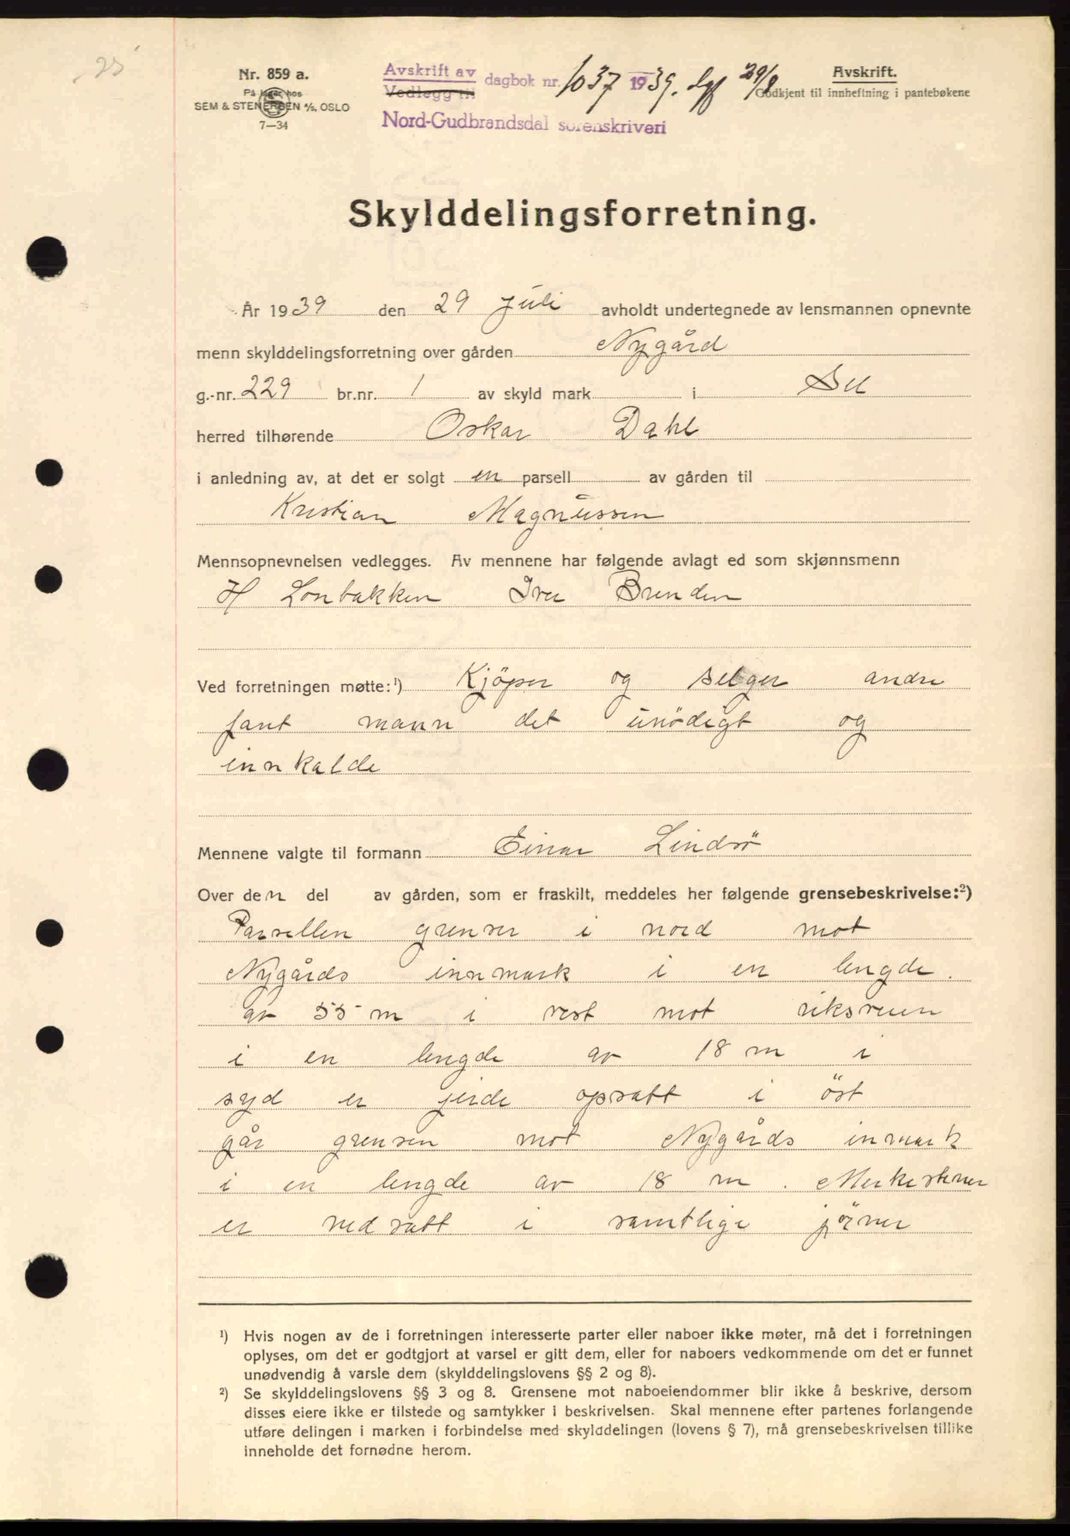 25
Nr. 859 a.
På lager hos
SEM & STENERSEN A/S, OSLO
7—34
Avskrift av
Vedlegg til
dagbok nr. 1037 1939. 29/8
Nord-Gudbrandsdal sorenskriveri
Avskrift.
Godkjent til innheftning i pantebøkene
Skylddelingsforretning.
År 1939 den 29 Juli avholdt undertegnede av lensmannen opnevnte
menn skylddelingsforretning over gården Nygård
g.-nr. 229 br.nr. 1 av skyld mark i Sel
herred tilhørende Oskar Dahl
i anledning av, at det er solgt en parsell av gården til
Kristian Magnussen
Mennsopnevnelsen vedlegges. Av mennene har følgende avlagt ed som skjønnsmenn
H Lonbakken Iver Brenden
Ved forretningen møtte:¹) Kjöper og selger andre
fant mann det unödigt og
innkalde
Mennene valgte til formann Einar Lindsö
Over den del av gården, som er fraskilt, meddeles her følgende grensebeskrivelse:²)
Parsellen grenser i nord mot
Nygårds innmark i en lengde
av 55 m i vest mot riksveien
i en lengde av 18 m i
syd er jerde opsatt i öst
går grensen mot Nygårds inmark
i en lengde av 18 m. Merkestener
er nedsatt i samtlige jörner
¹) Hvis nogen av de i forretningen interesserte parter eller naboer ikke møter, må det i forretningen
oplyses, om det er godtgjort at varsel er gitt dem, eller for naboers vedkommende om det er funnet
unødvendig å varsle dem (skylddelingslovens §§ 2 og 8).
²) Se skylddelingslovens §§ 3 og 8. Grensene mot naboeiendommer blir ikke å beskrive, dersom
disses eiere ikke er tilstede og samtykker i beskrivelsen. Skal mennene efter partenes forlangende
utføre delingen i marken i forbindelse med skylddelingen (lovens § 7), må grensebeskrivelsen tillike
inneholde det fornødne herom.